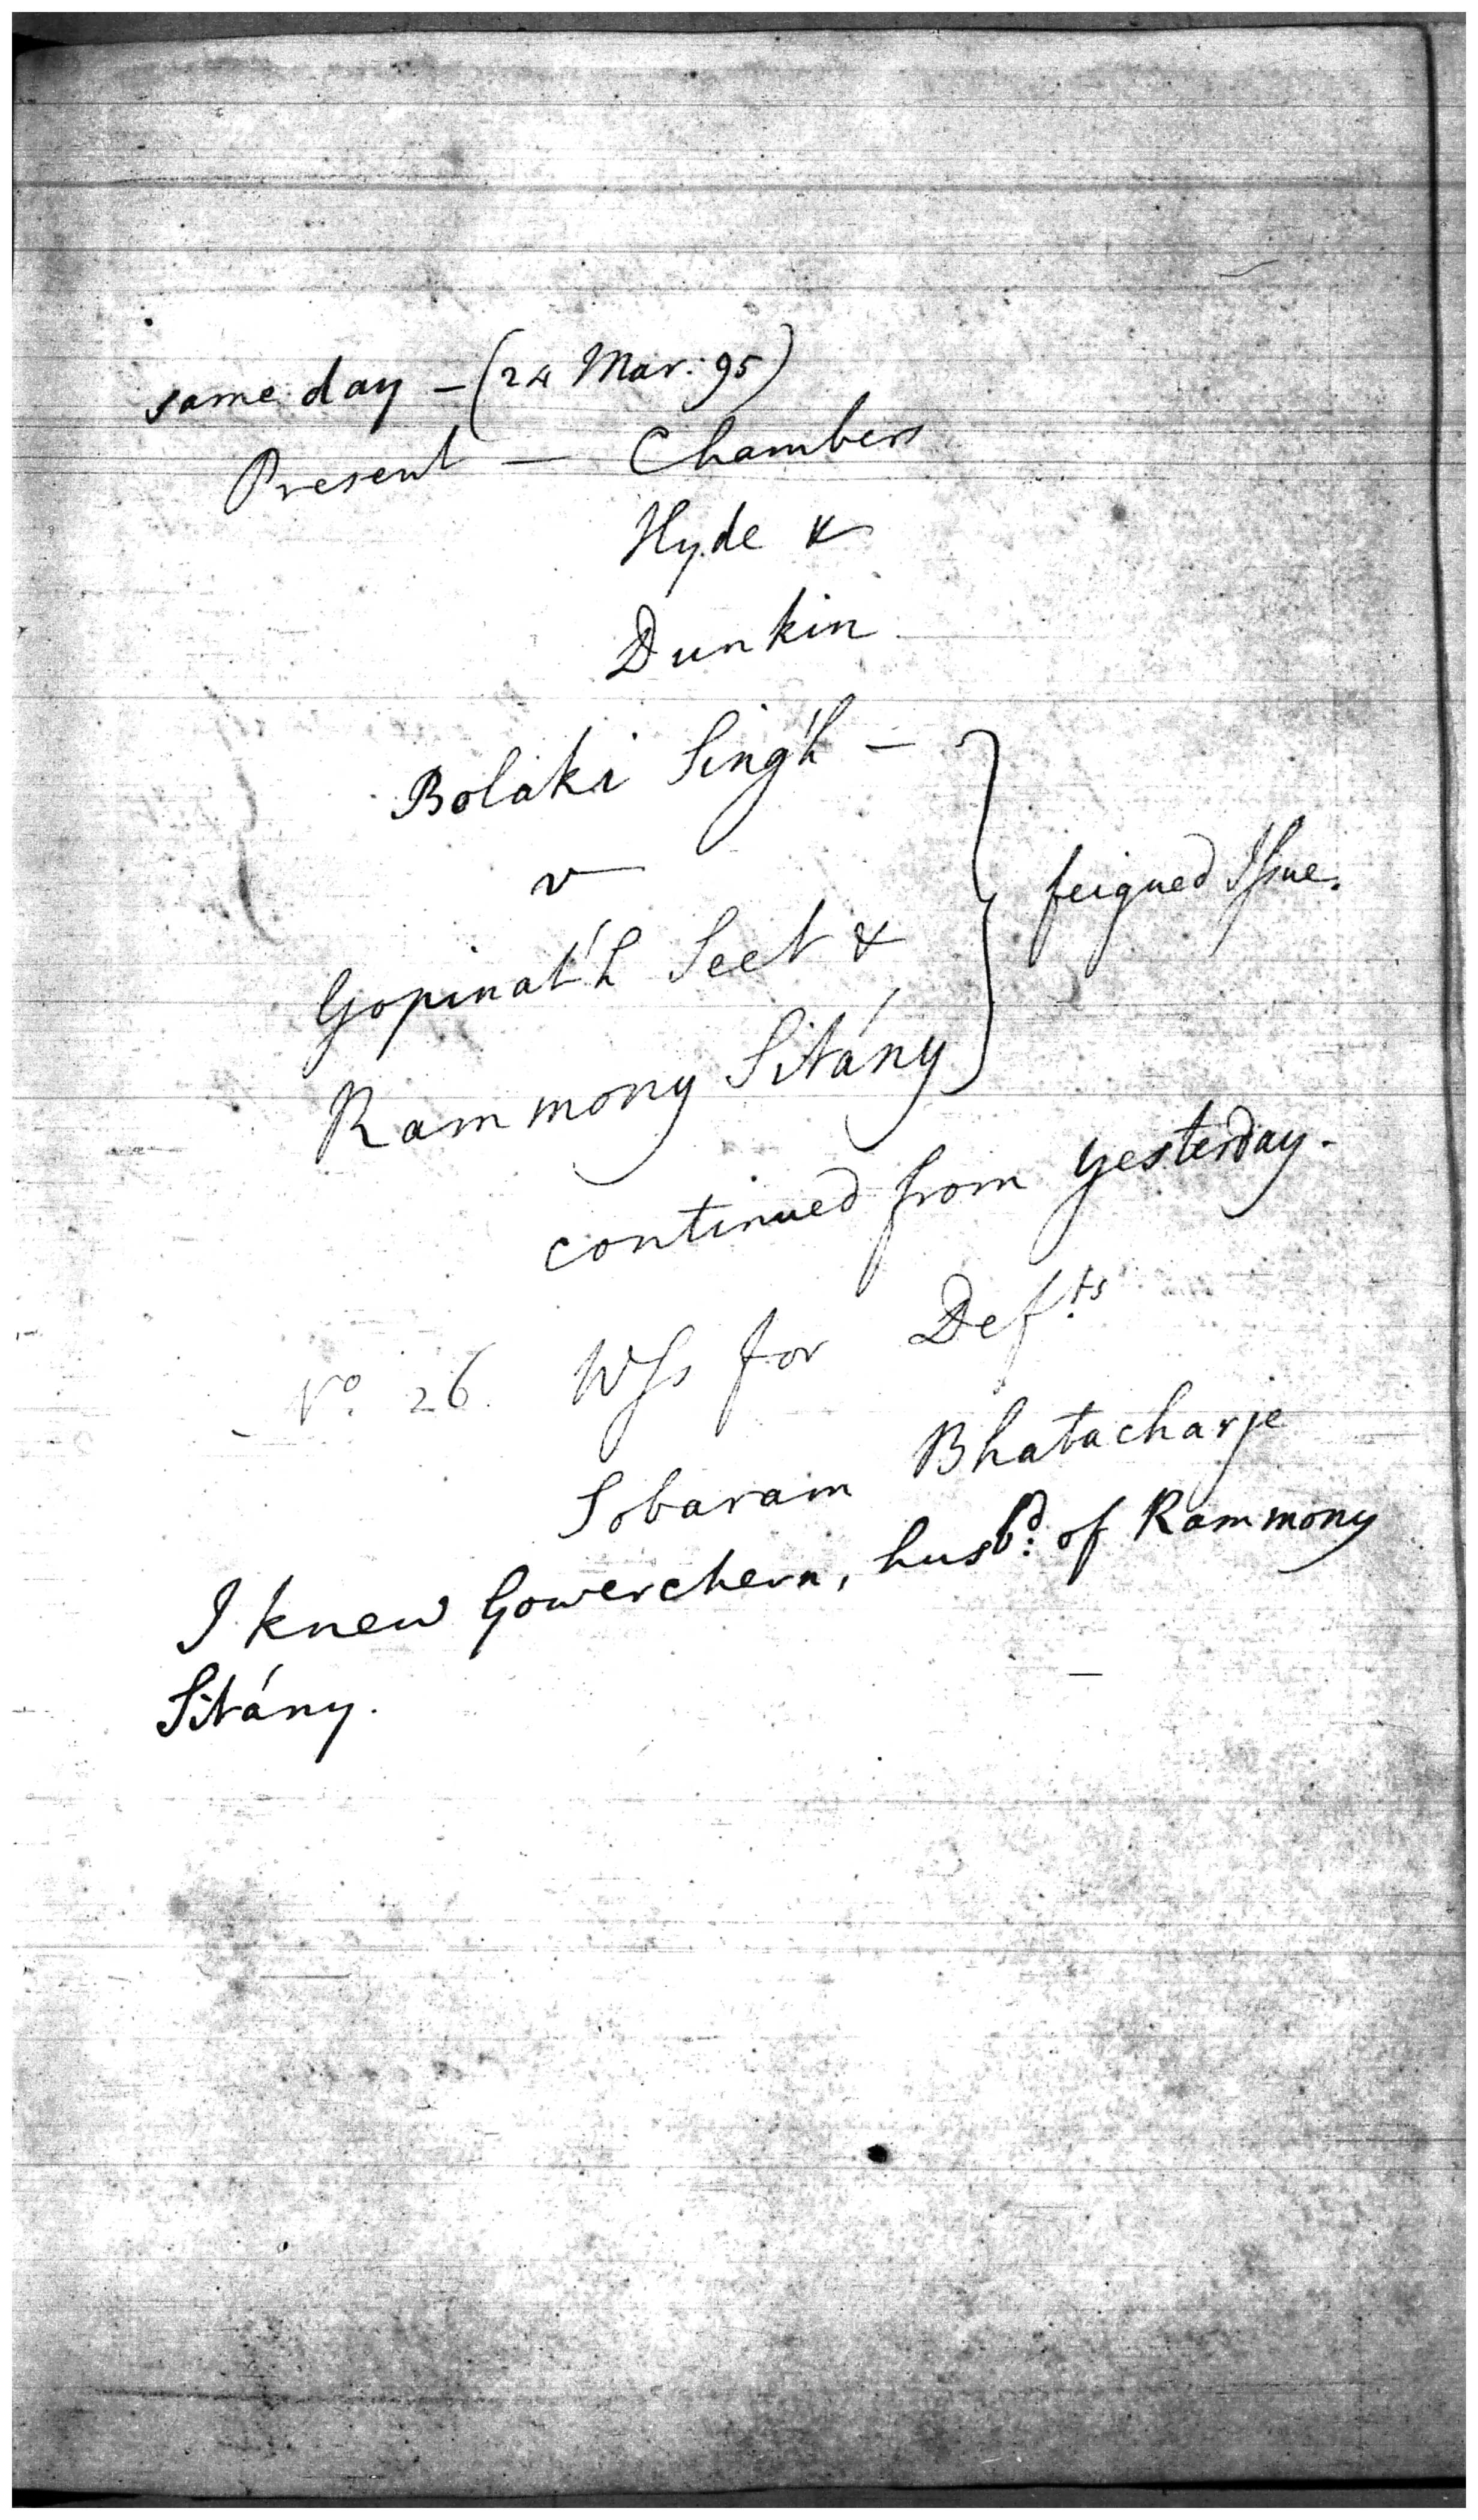 same day - (24 Mar: 95)
Present - Chambers
Hyde &
Dunkin
Bolaki Sing'h -
v
feigned Issue.
Gopinat'h Seet &
Rammony Sitány
continued from yesterday.
No. 26. Wss for Defts
Sobaram Bhatacharje
I knew Gowerchern, husbd: of Rammony
Sitány.